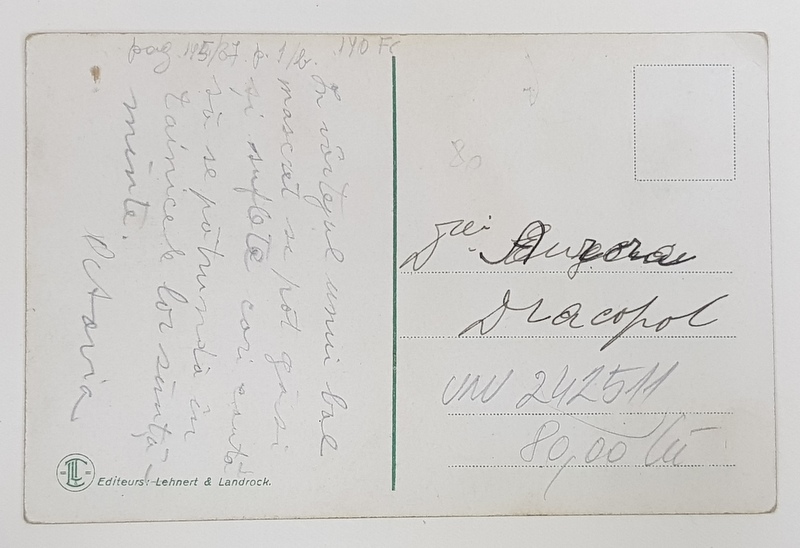 pag. 145/87. p. 1/2. 140 Fc
În vârtejul unui bal
mascat se pot găsi
și suflete cari caută
să se pătrundă în
tainicele lor
minte.
Victoria
80
Aurora
Dracopol
242511
80,00 lei
LL
Editeurs: Lehnert & Landrock.